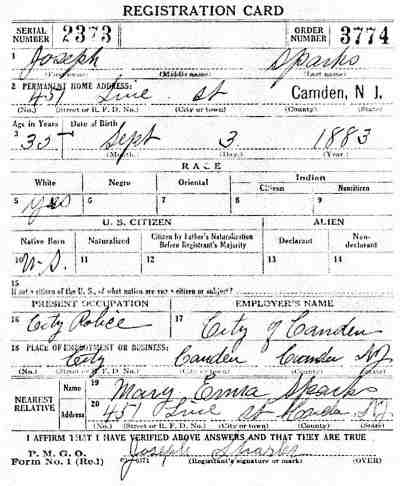 REGISTRATION CARD
SERIAL NUMBER 2373 ORDER NUMBER 3774
1 Joseph Sparks
(First name) (Middle name) (Last name)
2 PERMANENT HOME ADDRESS:
451 Line St Camden, N J.
(No.) (Street or R. F. D. No.) (City or town) (County) (State)
Age in Years Date of Birth
3 35 Sept 3 1883
(Month.) (Day.) (Year.)
RACE
White Negro Oriental Indian
Citizen Noncitizen
5 yes 6 7 8 9
U. S. CITIZEN ALIEN
Native Born Naturalized Citizen by Father's Naturalization Before Registrant's Majority Declarant Non-declarant
10 11 12 13 14
15
If not a citizen of the U. S., of what nation are you a citizen or subject?
PRESENT OCCUPATION EMPLOYER'S NAME
16 City Police 17 City of Camden
18 PLACE OF EMPLOYMENT OR BUSINESS:
City Camden Camden NJ
(No.) (Street or R. F. D. No.) (City or town) (County) (State)
NEAREST RELATIVE Name 19 Mary Emma Sparks
Address 20 451 Line St NJ
(No.) (Street or R. F. D. No.) (City or town) (County) (State)
I AFFIRM THAT I HAVE VERIFIED ABOVE ANSWERS AND THAT THEY ARE TRUE
P. M. G. O.
Form No. 1 (Red) Joseph Sparks
(Registrant's signature or mark) (OVER)